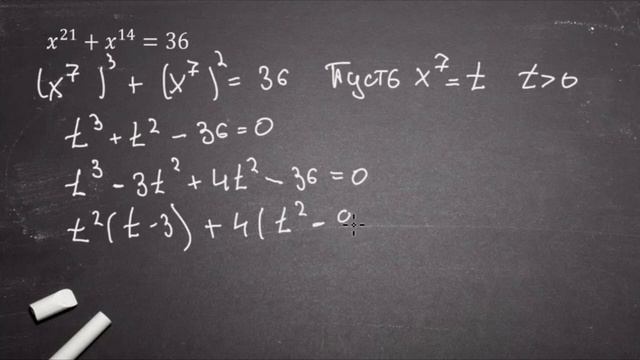 x²¹ + x¹⁴ = 36
(x⁷)³ + (x⁷)² = 36 Пусть x⁷ = t t>0
t³ + t² − 36 = 0
t³ − 3t² + 4t² − 36 = 0
t²(t − 3) + 4(t² − 9